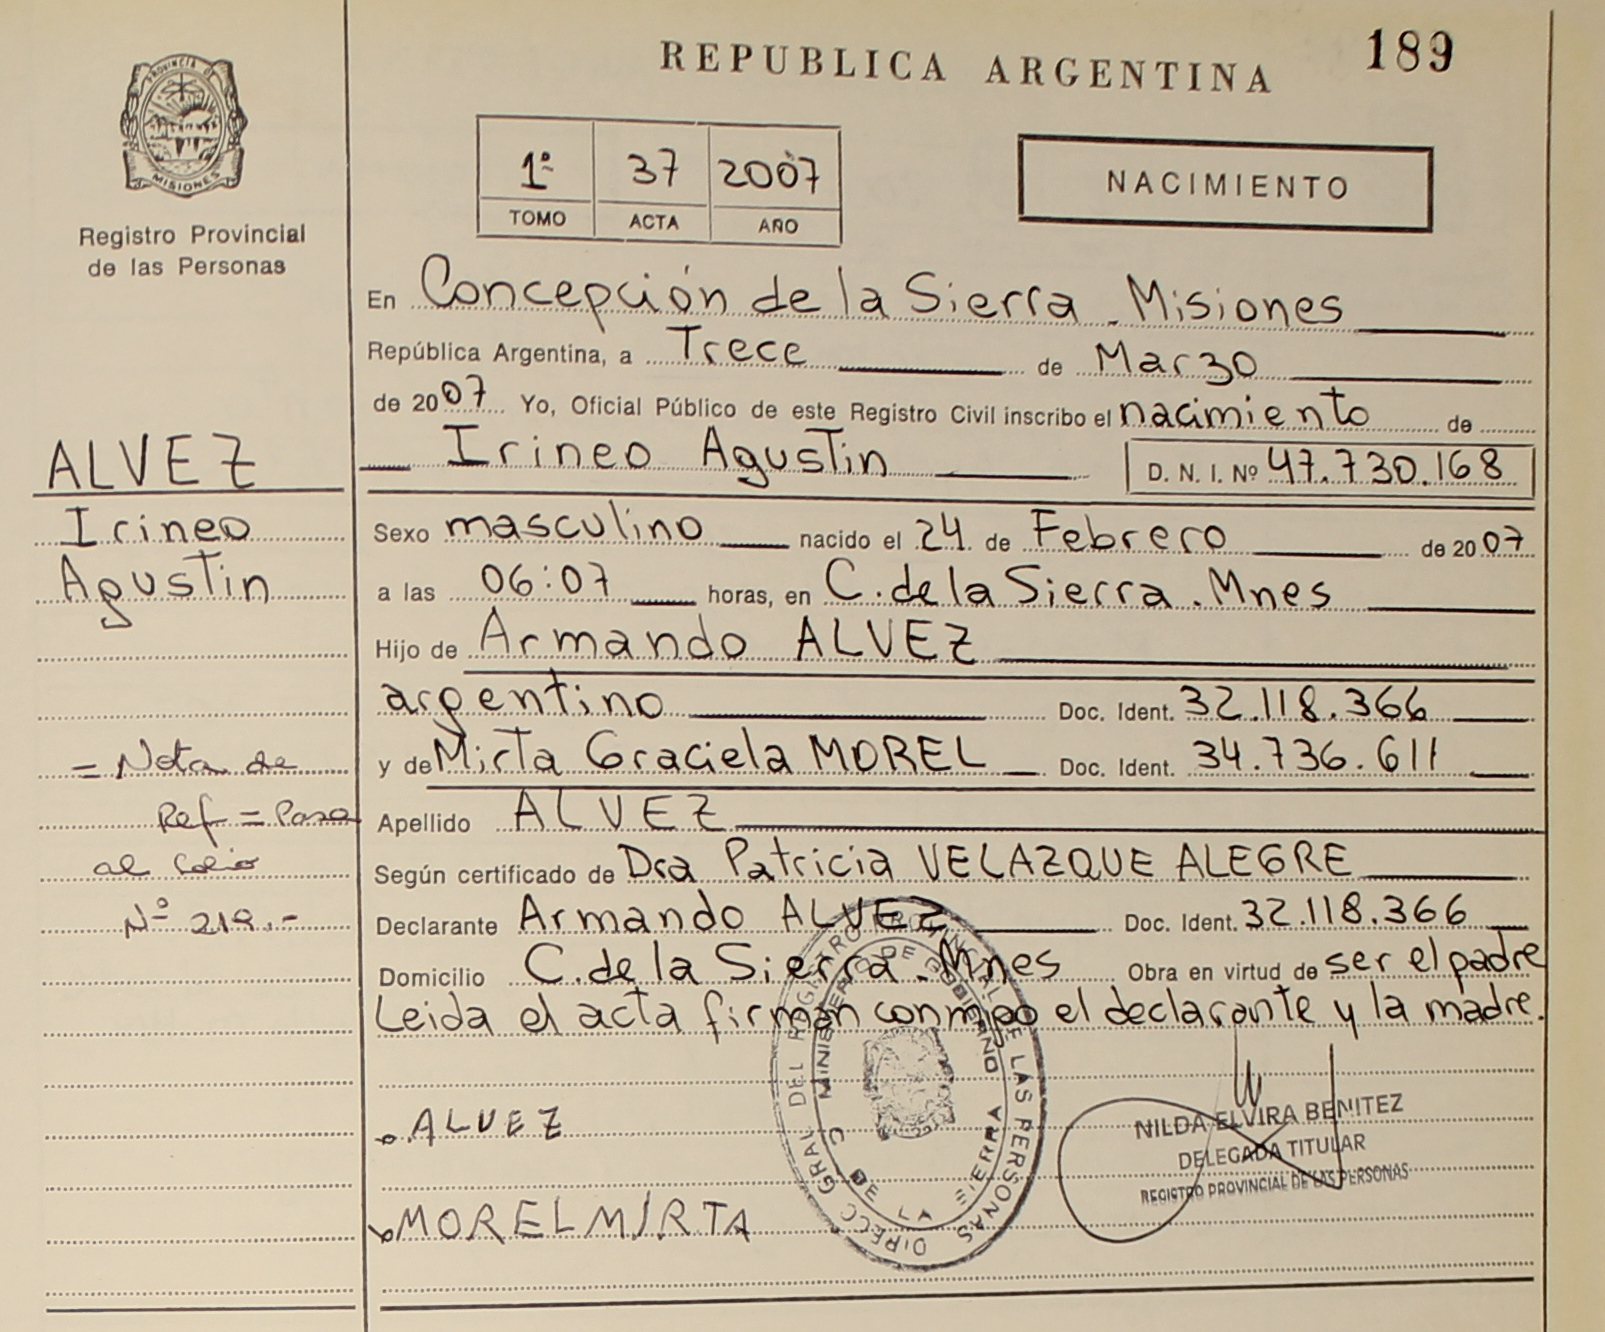 REPUBLICA ARGENTINA
189
PROVINCIA D MISIONES
Registro Provincial
de las Personas
1º 37 2007
TOMO ACTA AÑO
NACIMIENTO
En Concepción de la Sierra - Misiones
República Argentina, a Trece de Marzo
de 2007 Yo, Oficial Público de este Registro Civil inscribo el nacimiento de
Irineo Agustin D. N. I. Nº 47.730.168
ALVEZ
Irineo
Agustin
Sexo masculino nacido el 24 de Febrero de 2007
a las 06:07 horas, en C. de la Sierra - Mnes
Hijo de Armando ALVEZ
argentino Doc. Ident. 32.118.366
y de Mirta Graciela MOREL Doc. Ident. 34.736.611
Apellido ALVEZ
Según certificado de Dra Patricia VELAZQUE ALEGRE
Declarante Armando ALVEZ Doc. Ident. 32.118.366
Domicilio C. de la Sierra - Mnes Obra en virtud de ser el padre
Leida el acta firman conmigo el declarante y la madre.
= Nota de
Ref = Pasa
al folio
Nº 219.-
ALVEZ
MOREL MIRTA
DIRECC GRAL DEL REGISTRO PROVINCIAL DE LAS PERSONAS
MINISTERIO DE GOBIERNO
C DE LA SIERRA
NILDA ELVIRA BENITEZ
DELEGADA TITULAR
REGISTRO PROVINCIAL DE LAS PERSONAS